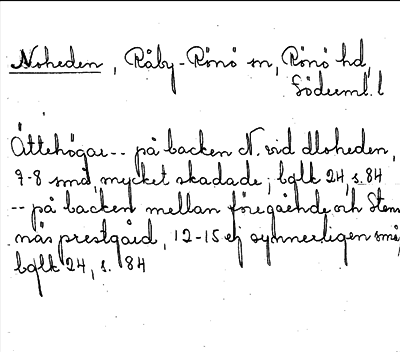 Noheden, Råby-Rönö sn, Rönö hd,
Söderml. l
Ättehögar -- på backen N. vid Noheden,
7-8 små, mycket skadade; bglk 24, s. 84
-- på backen mellan föregående och Sten
näs prestgård, 12-15 ej synnerligen små,
bglk 24, s. 84